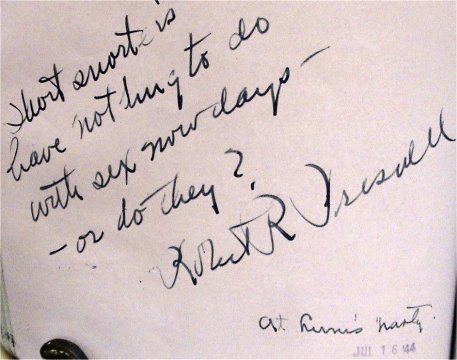 Short snorters
have nothing to do
with sex now days -
- or do they?
Robert R
At party.
JUL 16 '44